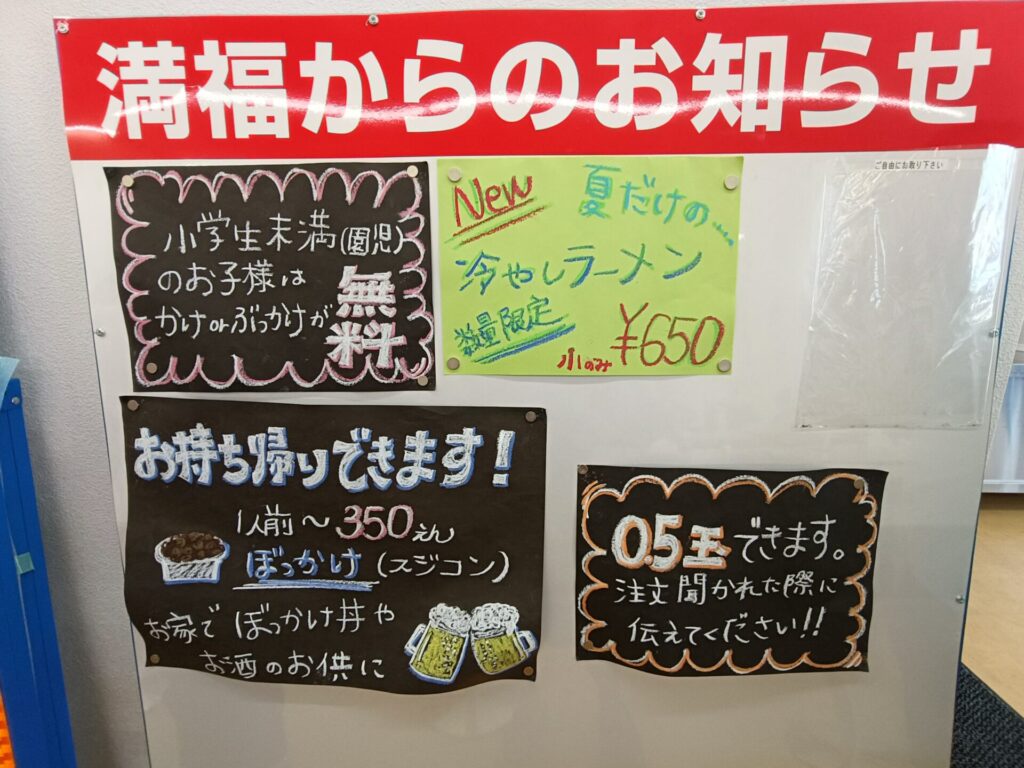 満福からのお知らせ
小学生未満(園児)
のお子様は
かけorぶっかけが
無料
New 夏だけの...
冷やしラーメン
数量限定
小のみ ¥650
ご自由にお取り下さい
お持ち帰りできます!
1人前～350えん
ぼっかけ(スジコン)
お家でぼっかけ丼や
お酒のお供に
0.5玉できます。
注文聞かれた際に
伝えてください!!